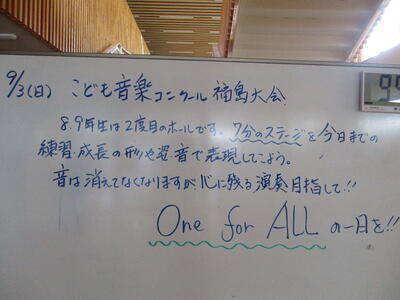 9/3(日) こども音楽コンクール福島大会
8.9年生は2度目のホールです。7分のステージを今日までの
練習、成長の形や姿、音で表現してこよう。
音は消えてなくなりますが、心に残る演奏目指して!!
One for ALL の一日を!!